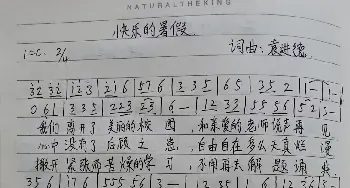 NATURALTHEKING
快乐的暑假
1=C 2/4 词曲:袁进德
32 32 | 1 2 3 | 2 1 6 | 5 7 6 | 3 3 5 | 6 5 | 3 5 2 | 1 - | 1 - |
0 6 1 | 3 3 5 | 2 2 3 2 3 | 6 - | 1 2 3 3 | 5 5 5 6 | 5 2 | 3 - |
我们离开了美丽的校园,和亲爱的老师说声再见
心中没有了后顾之忧,自由自在多么天真烂漫
撇开紧张而苦燥的学习,不用再去解题诵典
3 5 6 | 1 7 6 | 5 5 5 6 | 3 -